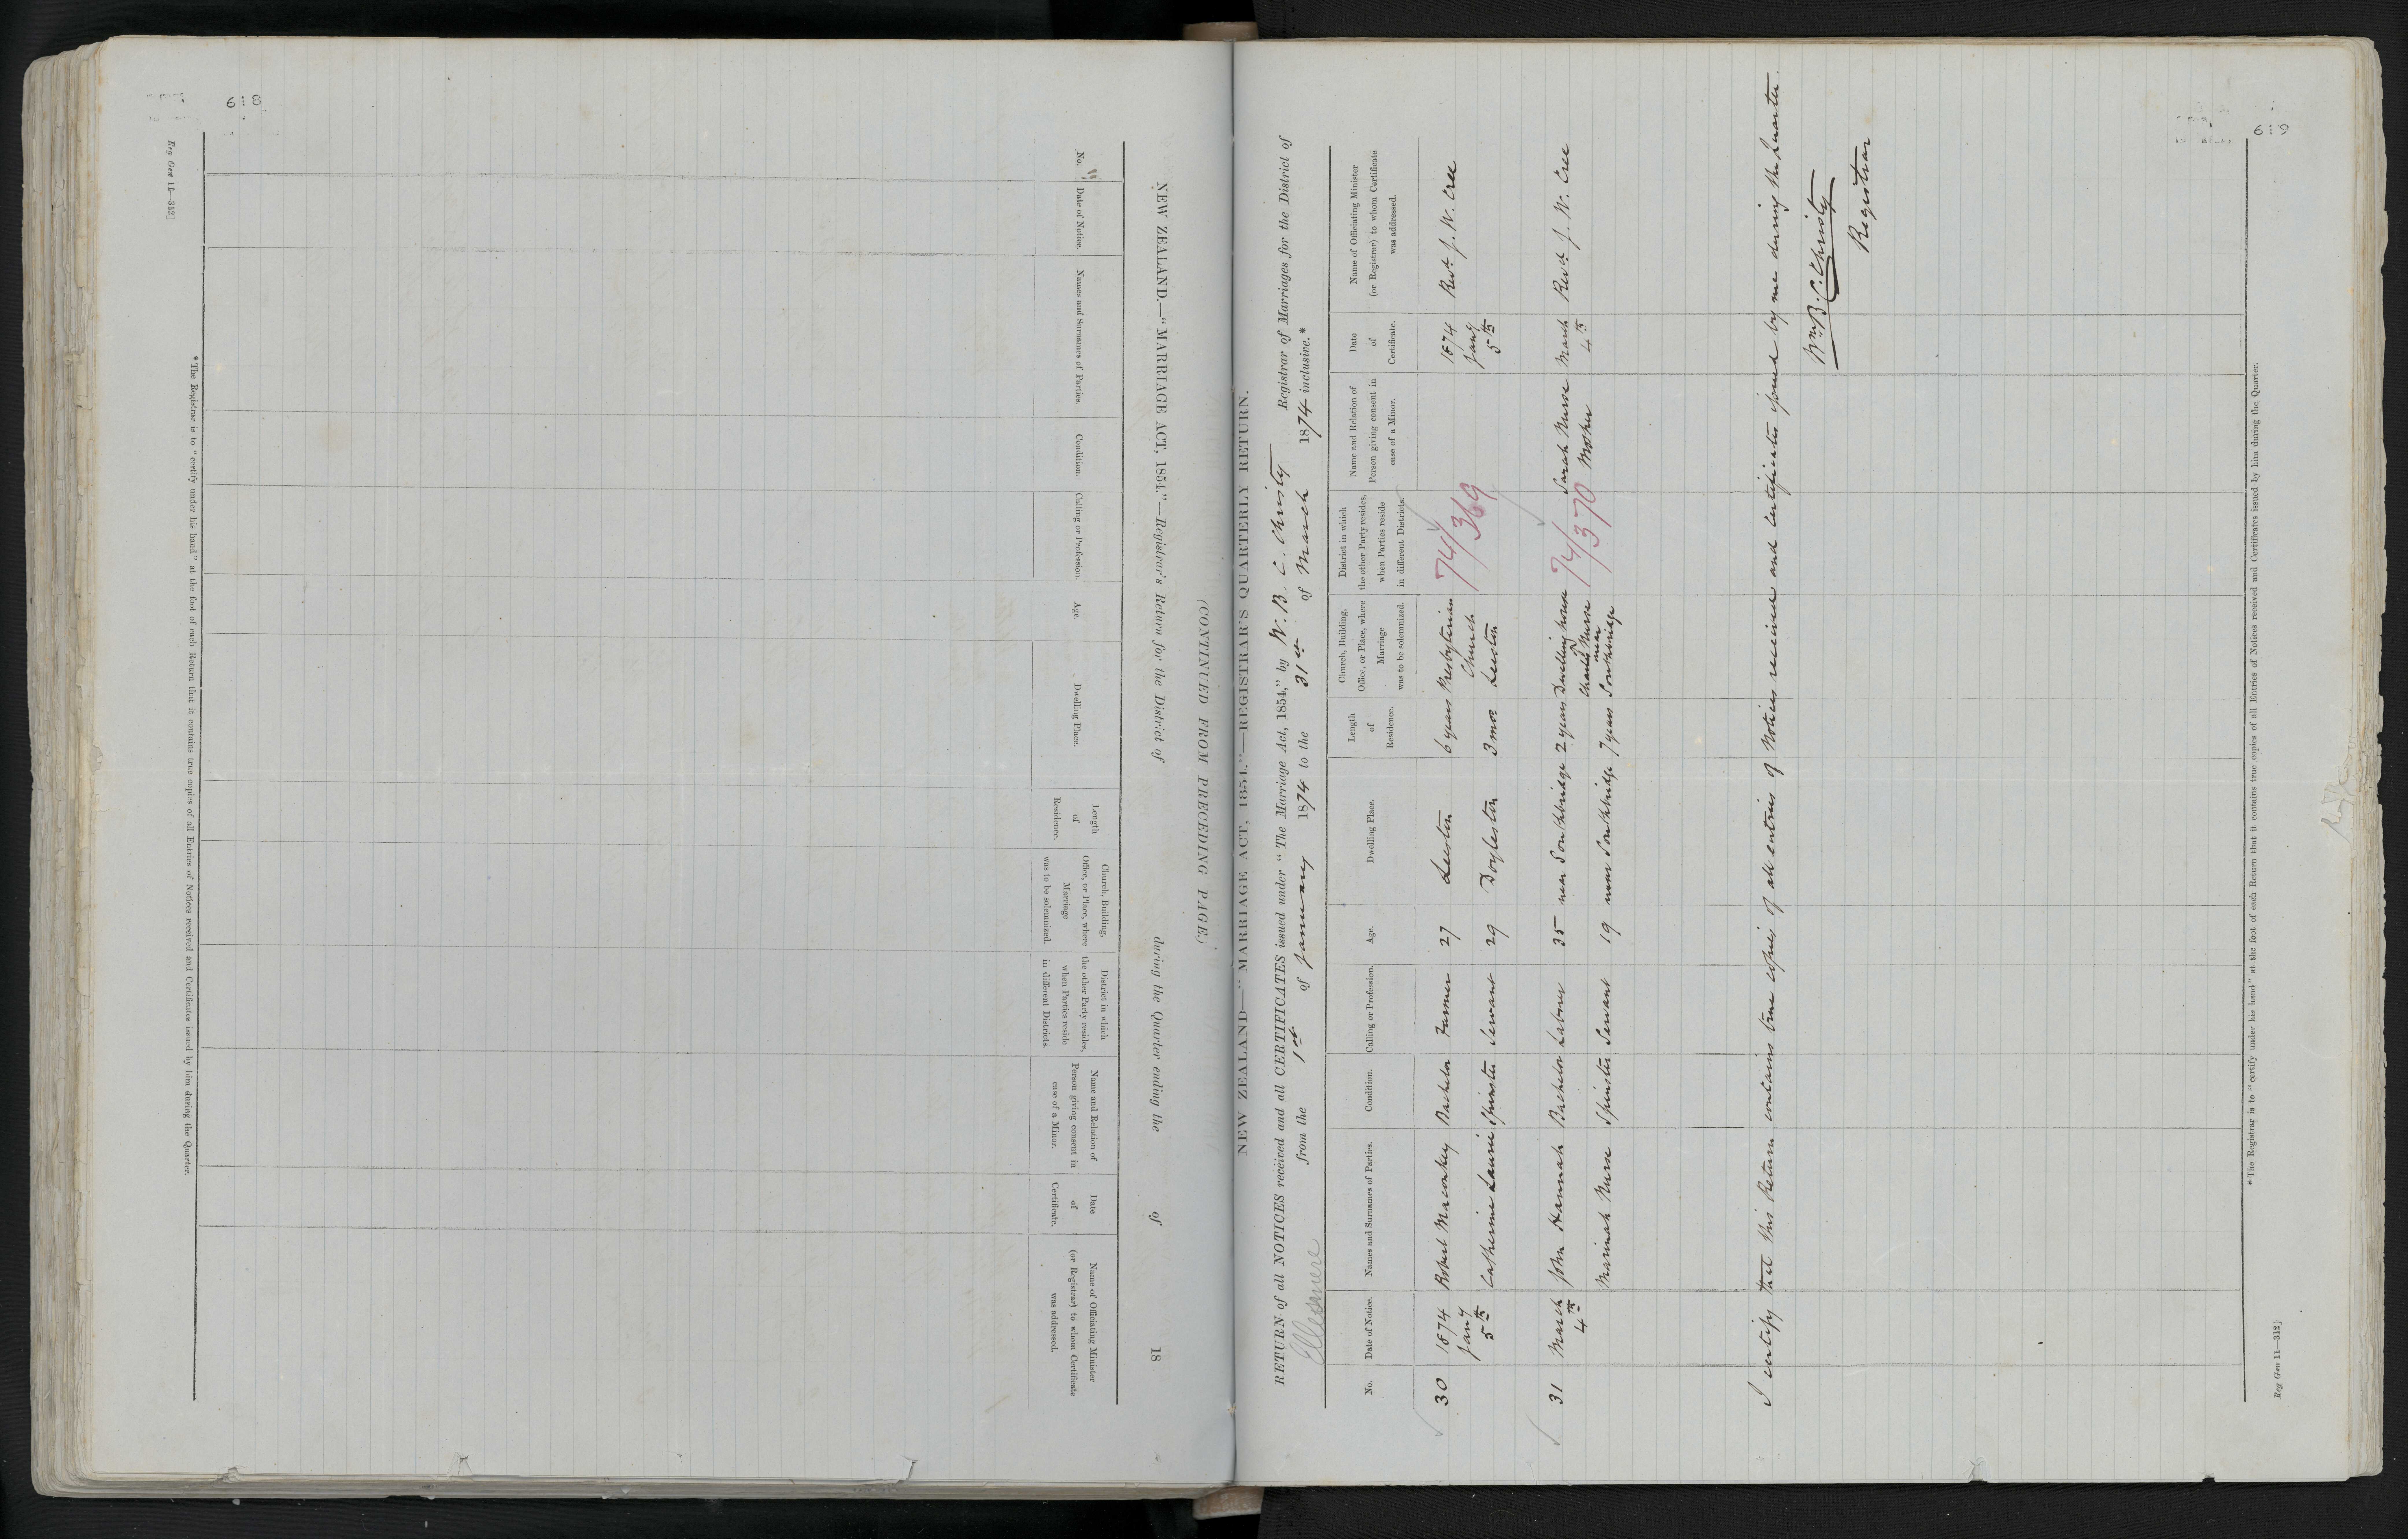 618
Reg Gen 11—312]
NEW ZEALAND.—"MARRIAGE ACT, 1854."—Registrar's Return for the District of during the Quarter ending the of 18
(CONTINUED FROM PRECEDING PAGE.)
No.
Date of Notice.
Names and Surnames of Parties.
Condition.
Calling or Profession.
Age.
Dwelling Place.
Length
of
Residence.
Church, Building,
Office, or Place, where
Marriage
was to be solemnized.
District in which
the other Party resides,
when Parties reside
in different Districts.
Name and Relation of
Person giving consent in
case of a Minor.
Date
of
Certificate.
Name of Officiating Minister
(or Registrar) to whom Certificate
was addressed.
*The Registrar is to "certify under his hand" at the foot of each Return that it contains true copies of all Entries of Notices received and Certificates issued by him during the Quarter.
NEW ZEALAND—"MARRIAGE ACT, 1854."—REGISTRAR'S QUARTERLY RETURN.
RETURN of all NOTICES received and all CERTIFICATES issued under "The Marriage Act, 1854," by W. B. C. Christy Registrar of Marriages for the District of
Ellesmere from the 1st of January 1874 to the 31st of March 1874 inclusive.*
No.
Date of Notice.
Names and Surnames of Parties.
Condition.
Calling or Profession.
Age.
Dwelling Place.
Length
of
Residence.
Church, Building,
Office, or Place, where
Marriage
was to be solemnized.
District in which
the other Party resides,
when Parties reside
in different Districts.
Name and Relation of
Person giving consent in
case of a Minor.
Date
of
Certificate.
Name of Officiating Minister
(or Registrar) to whom Certificate
was addressed.
30 1874 Robert Maconkey Bachelor Farmer 27 Leeston 6 years Presbyterian 74/369 1874 Revd J. W. Cree
Jany Church Jany
5th Catherine Laurie Spinster Servant 29 Doyleston 3 mos Leeston 5th
31 March John Hannah Bachelor Laborer 35 near Southbridge 2 years Dwelling house 74/370 Sarah Nurse March Revd J. W. Cree
4th of Charles Nurse Mother 4th
near
Mariah Nurse Spinster Servant 19 near Southbridge 7 years Southbridge
I certify that this Return contains true copies of all entries of Notices received and Certificates issued by me during the Quarter.
Wm B. C. Christy
Registrar
*The Registrar is to "certify under his hand" at the foot of each Return that it contains true copies of all Entries of Notices received and Certificates issued by him during the Quarter.
Reg Gen 11—312]
619